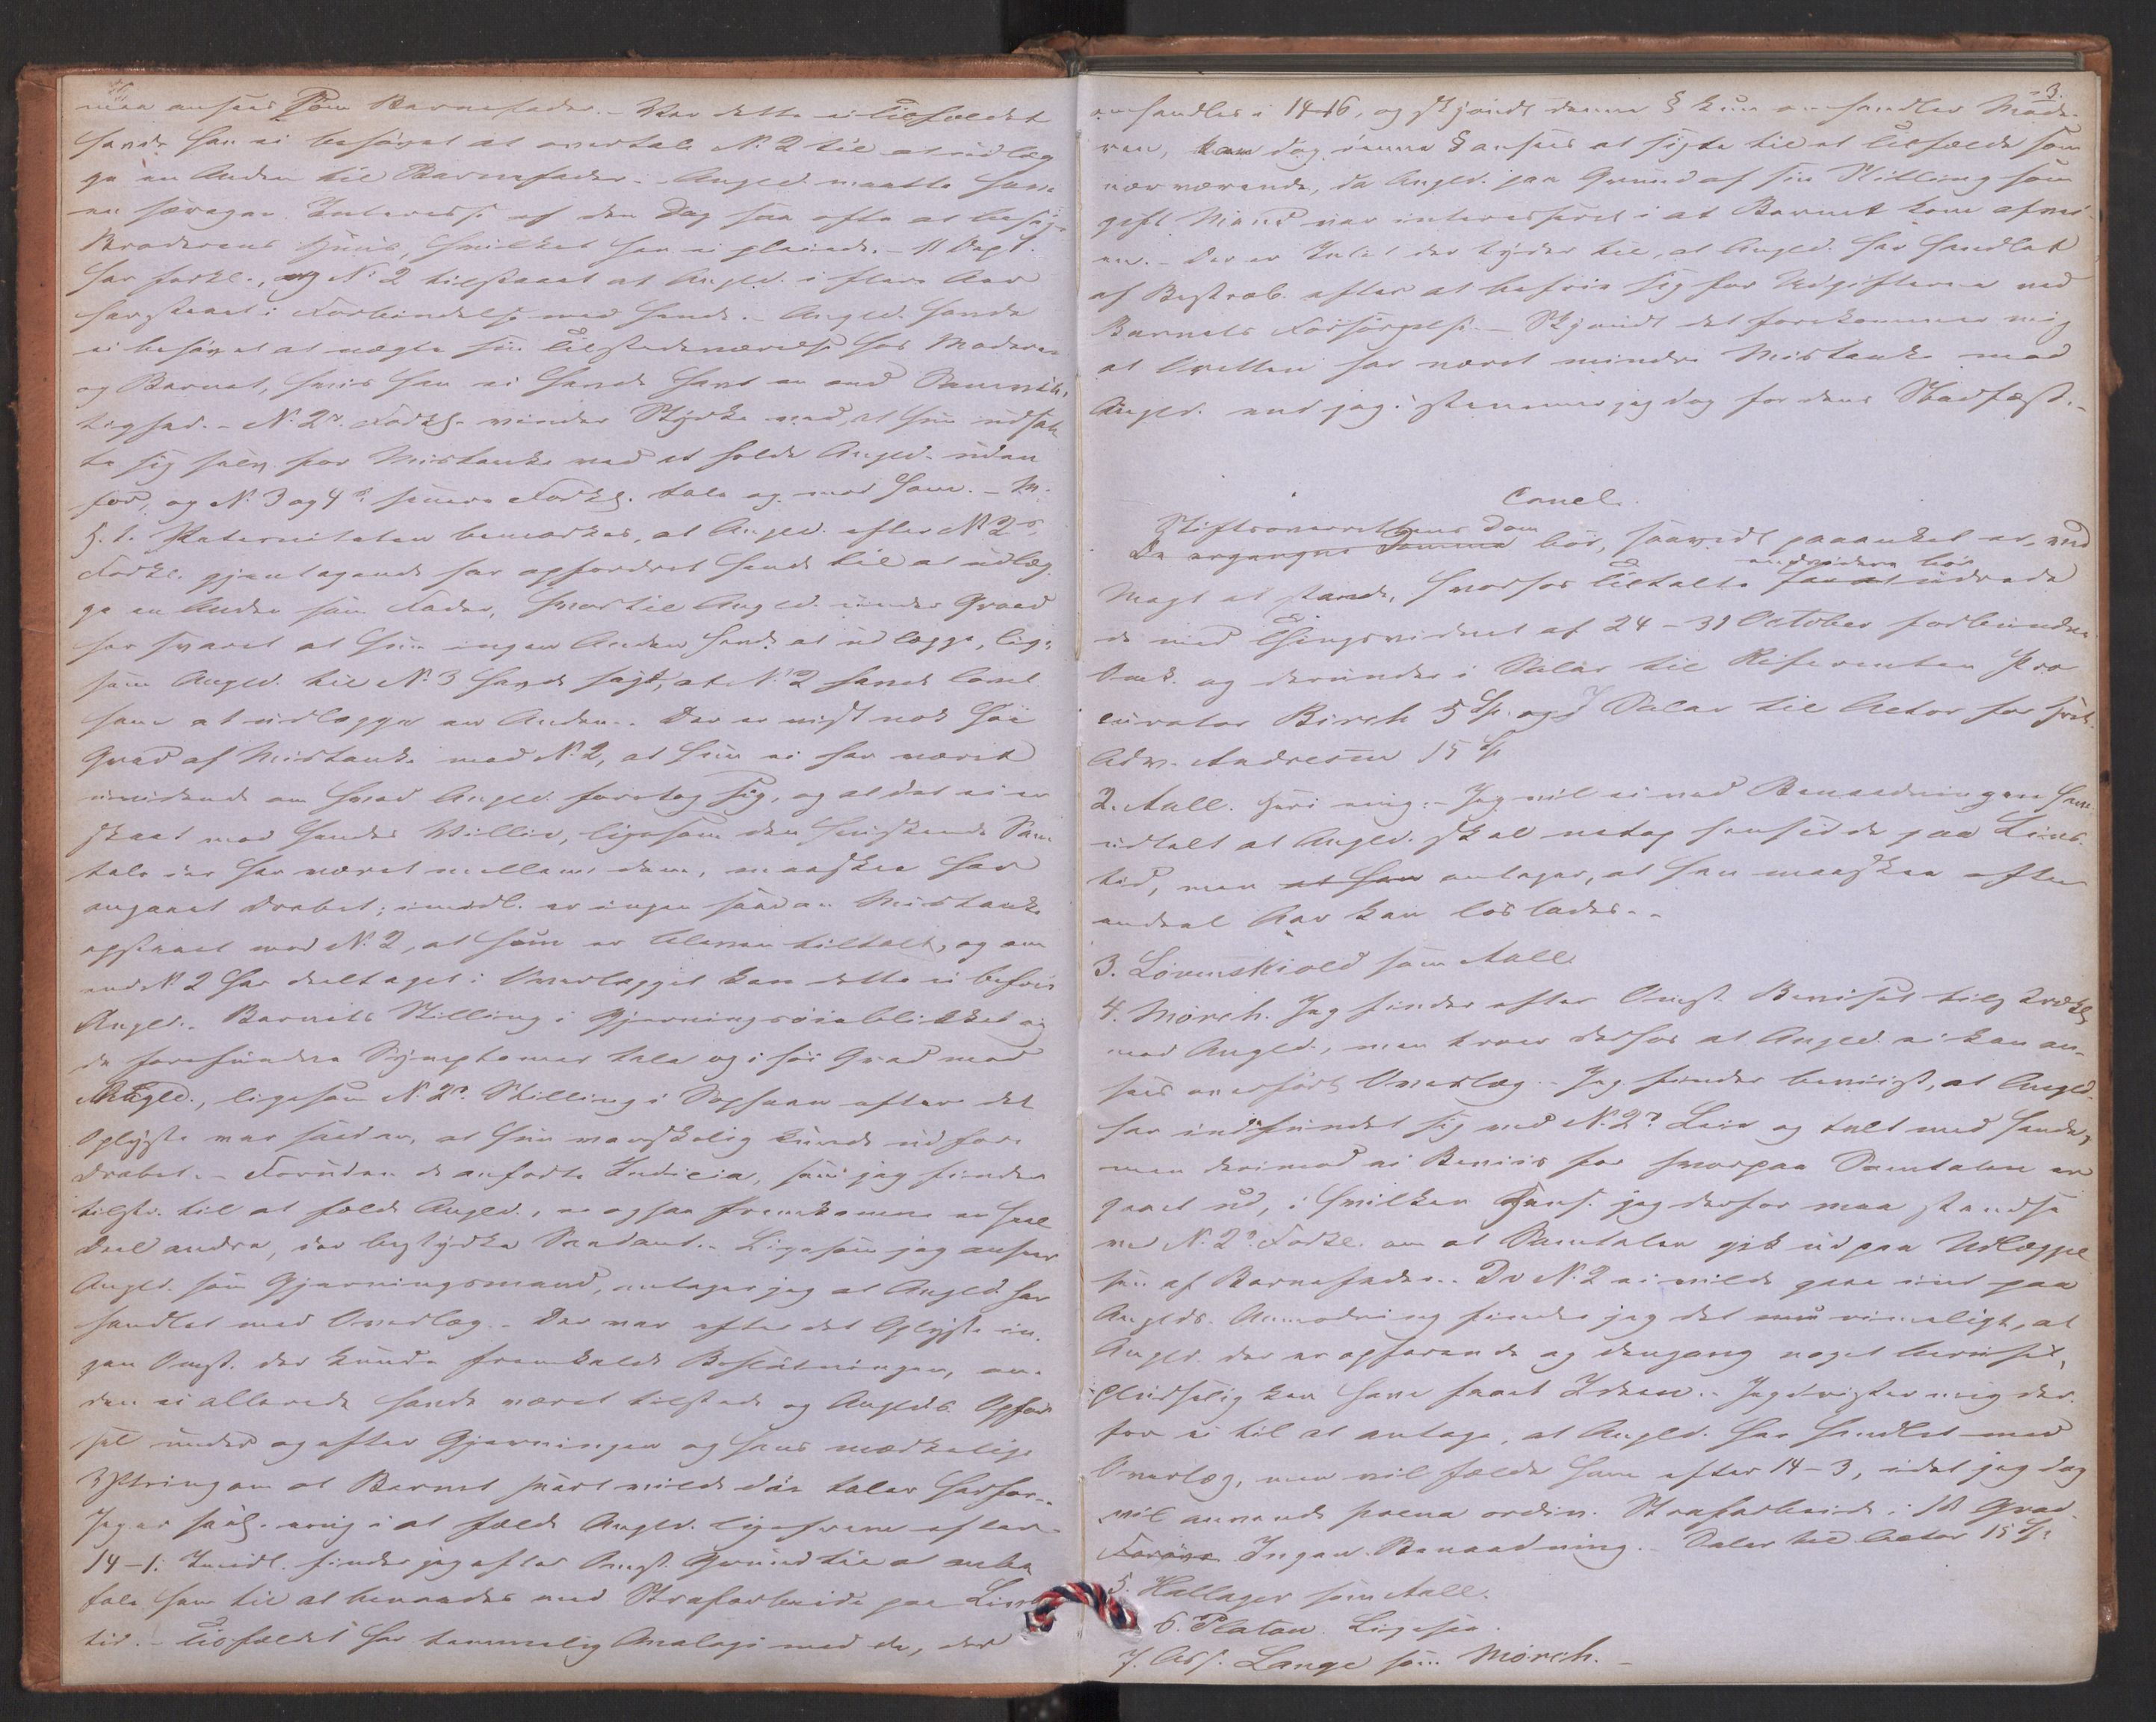 maa ansees som Barnefader. - Var dette ei Tilfældet
havde han ei behøvet at overtale N. 2 til at udlæg
ge en Anden til Barnefader. - Angld. maatte have
en særegen Interesse af den Dag saa ofte at besøge
Broderens Huus, hvilket han ei pleiede. - 11 Dept.
har forkl., og N. 2 tilstaaet at Angld. i flere Aar
har staaet i Forbindelse med hende. - Angld. havde
ei behøvet at nægte sin Tilstedeværelse hos Moderen
og Barnet, hvis han ei havde havt en ond Samvit-
tighed. - N. 2s Forklg. vinder Styrke ved, at hun udsat
te sig selv for Mistanke ved at holde Angld. uden
for, og N. 3 og 4s senere Forklg. tale og mod ham. - M.
H. t. Paterniteten bemærkes, at Angld. efter N 2s
Forkl. gjentagende har opfordret hende til at udlæg
ge en Anden som Fader, hvortil Angld. under Graad
har svaret at hun ingen Anden havde at udlægge, lige
som Angld. til N. 3 havde sagt, at N. 2 havde lovet
ham at udlægge en Anden. - Der er vist nok høi
Grad af Mistanke mod N. 2, at hun ei har været
uvidende om hvad Angld. foretog sig, og at det ei er
skeet mod hendes Villie, ligesom den hviskende Sam
tale der har været mellem dem, maaskee har
angaaet Drabet; imidl. er ingen saadan Mistanke
opstaaet mod N. 2, at hun er bleven tiltalt, og om
end N 2 har deeltaget i Overlægget kan dette ei befrie
Angld. Barnets Stilling i Gjerningsøieblikket og
de forefundne Symptomer tale og i høi Grad mod
Angld., ligesom N. 2s Stilling i Sophaen efter det
Oplyste var saadan, at hun vanskelig kunde udføre
Drabet. - Foruden de anførte Indicia, som jeg finder
tilstr. til at fælde Angld., er ogsaa fremkomne en heel
Deel andre, der bestyrke Saadant. - Ligesom jeg anseer
Angld. som Gjerningsmand, antager jeg at Angld. har
handlet med Overlæg. - Der var efter det Oplyste in-
gen Omst. der kunde fremkalde Beslutningen, om
den ei allerede havde været tilstede og Anglds. Opfør
sel under og efter Gjerningen og hans mærkelige
Yttring om at Barnet snart vilde døe taler herfor. -
Jeg er saal. enig i at fælde Angld. ligefrem efter
14-1. Imidl. finder jeg efter Omst. Grund til at anbe
fale ham til at benaades med Strafarbeide paa Livs
tid. - Tilfældet har temmelig Analogi med de, der
3.
omhandles i 14-16, og skjøndt denne § kun omhandler Mode-
ren, kan dog denne § ansees at sigte til et Tilfælde som
nærværende, da Angld. paa Grund af sin Stilling som
gift Mand var interesseret i at Barnet kom afvei-
en. - Der er Intet der tyder til, at Angld. har handlet
af Bestræb. efter at befrie sig for Udgifterne ved
Barnets Forsørgelse. - Skjøndt det forekommer mig
at Overretten har næret mindre Mistanke mod
Angld. end jeg, stemmer jeg dog for dens Stadfæst. -
Concl.
Stiftsoverrettens Dom
De ergangne Domme bør, saavidt paaanket er, ved
Magt at stande, hvorhos Tiltalte endvidere bør udrede
de ved Thingsvidnet af 24 - 31 October forbundne
Omk. og derunder i Salær til Referenten Pro
curator Birch 5 Sp. og i Salær til Actor for Høiest.
Adv. Andresen 15 Sp
2. Aall. Heri enig. - Jeg vil ei ved Benaadningen have
udtalt at Angld. skal netop hensidde paa Livs-
tid, men at han antager, at han maaskee efter
endeel Aar kan løslades. -
3. Løvenskiold som Aall
4. Mørch. Jeg finder efter Omst. Beviset tilstrækl.
mod Angld., men troer derfor at Angld. ei kan an-
sees overført Overlæg. - Jeg finder beviist, at Angld.
har indfundet sig ved N. 2s Leie og talt med hende,
men derimod ei Beviis for hvorpaa Samtalen er
gaaet ud, i hvilken Hens. jeg derfor maa standse
ved N. 2s Forkl. om at Samtalen gik ud paa Udlæggel
sen af Barnefader. - Da N. 2 ei vilde gaae ind paa
Anglds. Anmodning finder jeg det rimeligt, at
Angld. der er opfarende og dengang noget beruset,
pludselig kan have faaet Ideen. - Jeg drister mig der-
for ei til at antage, at Angld. har handlet med
Overlæg, men vil fælde ham efter 14-3, idet jeg dog
vil anvende poena ordin. Strafarbeide i 1st Grad.
Forøvr. Ingen Benaadning. - Salær til Actor 15 Sp.
5. Hallager som Aall.
6. Platou. Ligesaa.
7. Ass. Lange som Mørch. -